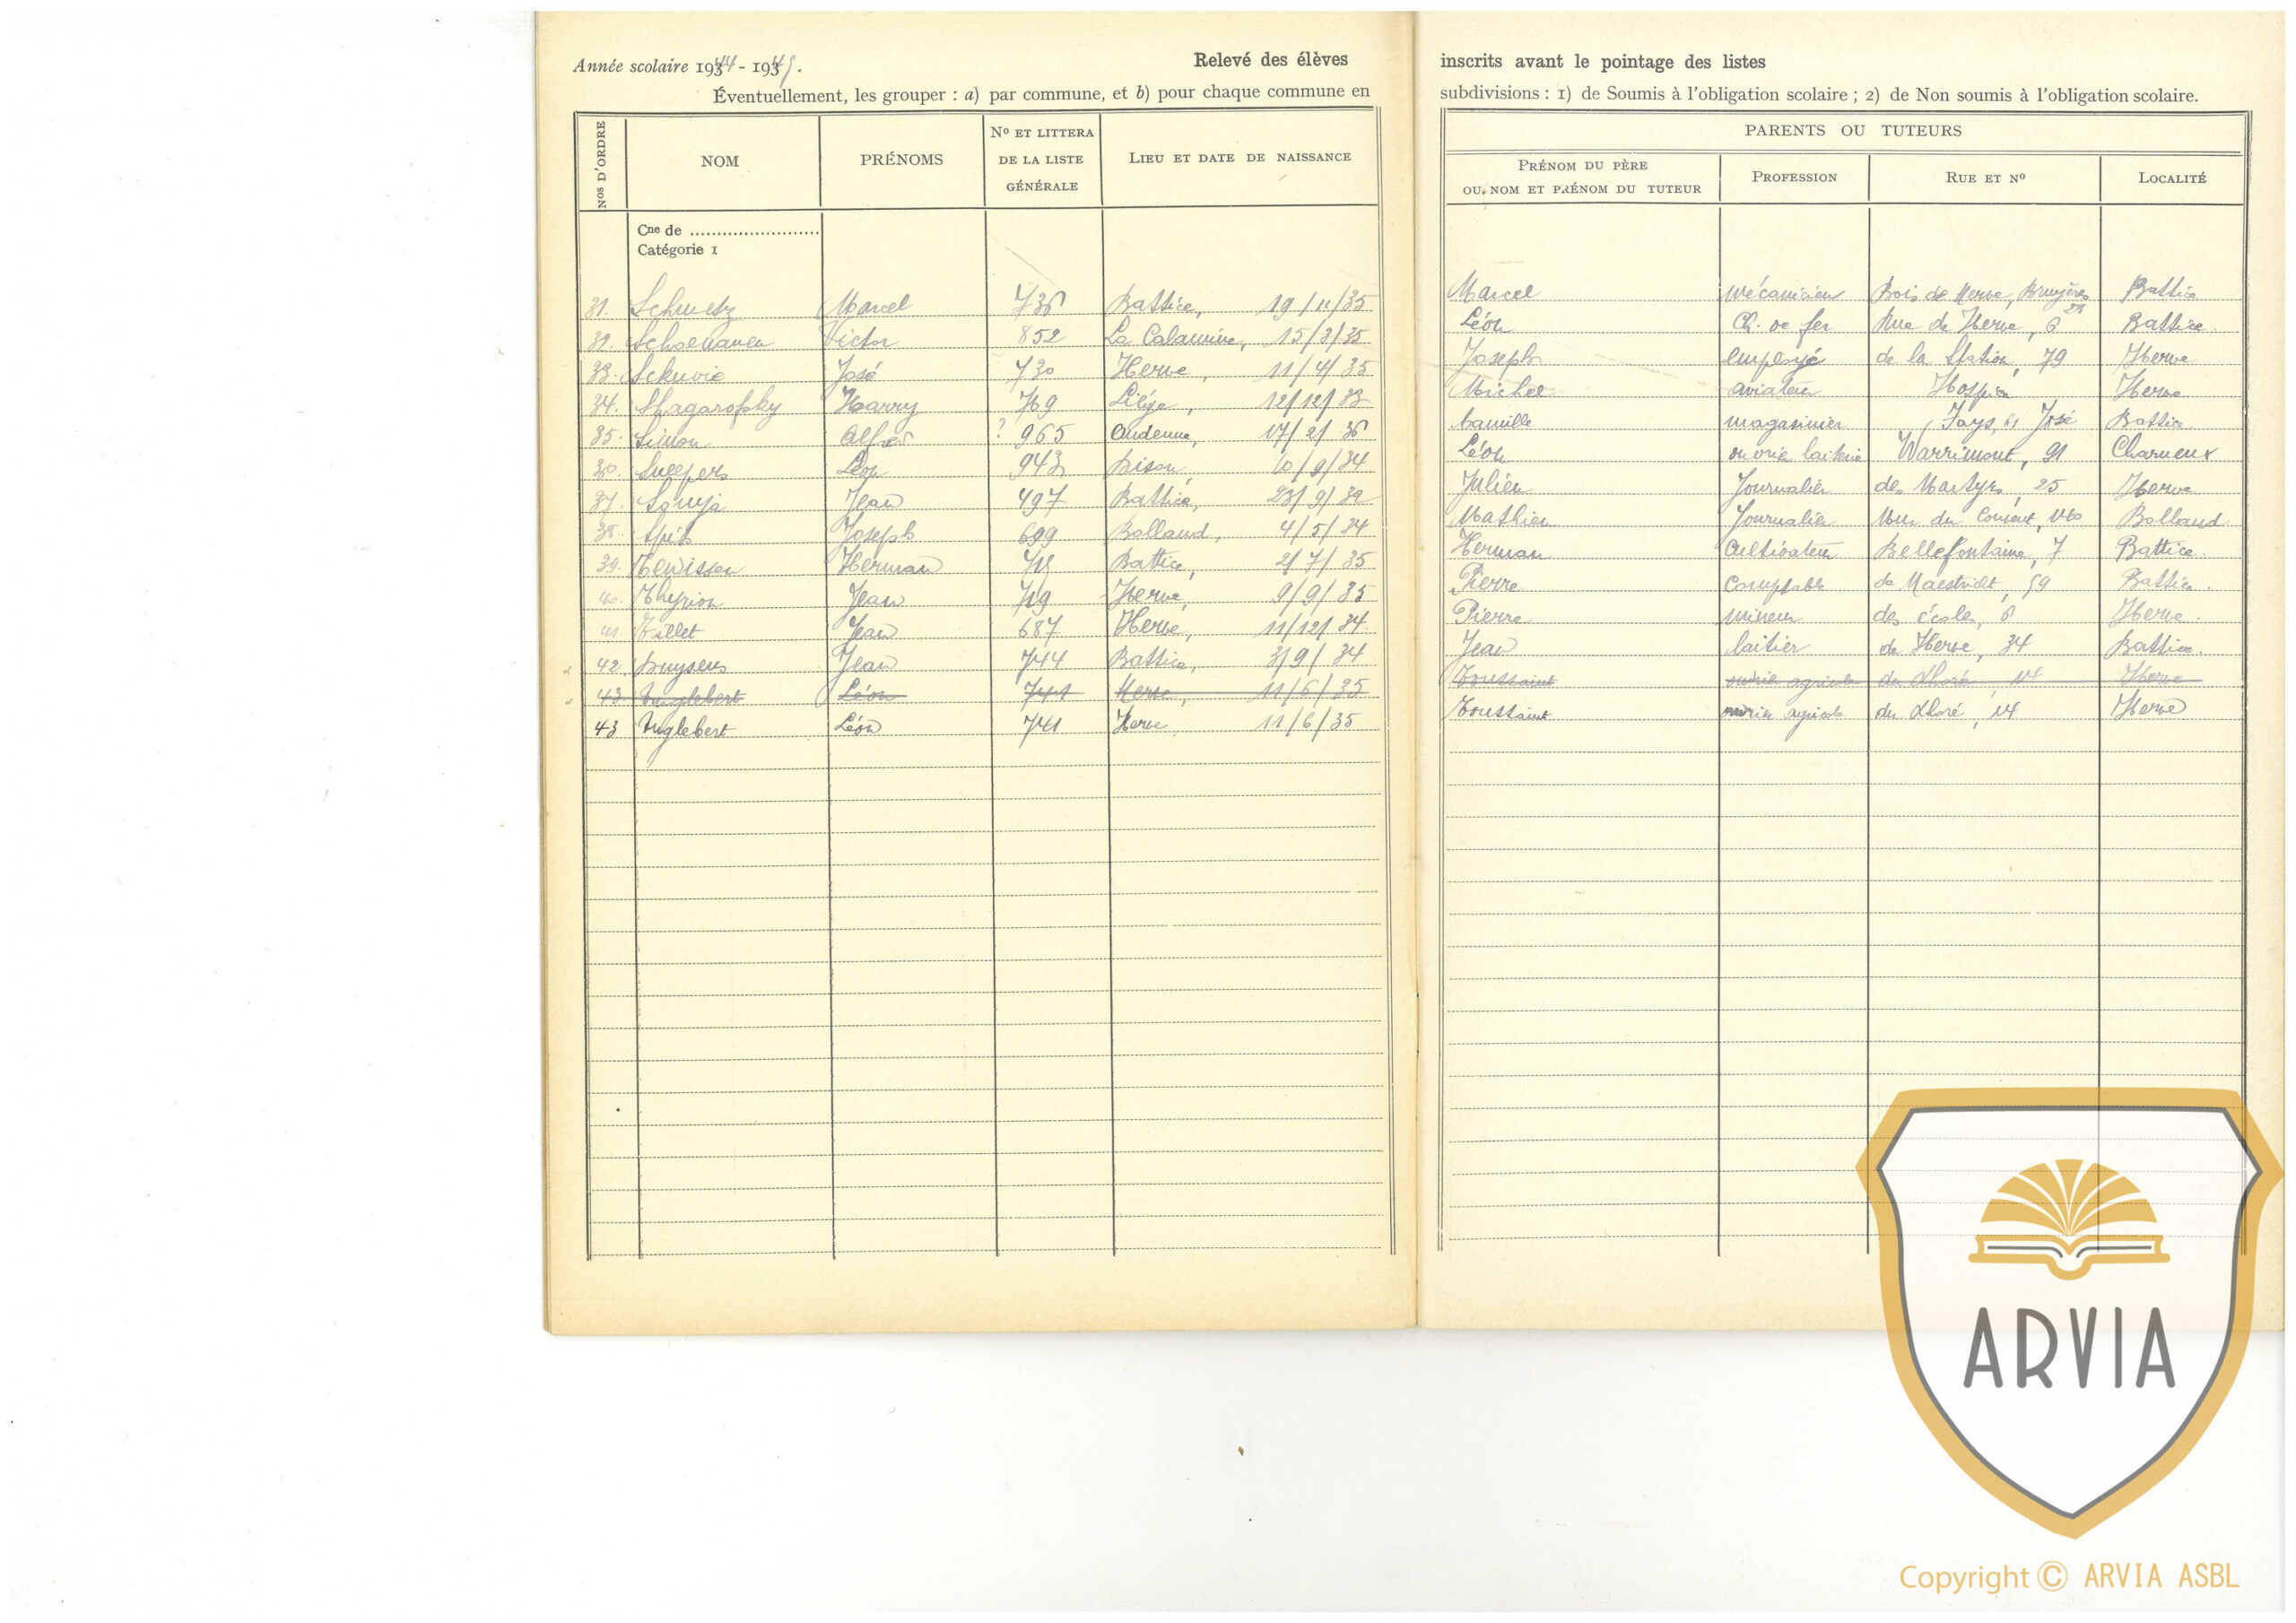 Année scolaire 1944 - 1945.
Relevé des élèves inscrits avant le pointage des listes
Éventuellement, les grouper : a) par commune, et b) pour chaque commune en subdivisions : 1) de Soumis à l'obligation scolaire ; 2) de Non soumis à l'obligation scolaire.
PARENTS OU TUTEURS
Nos D'ORDRE NOM PRÉNOMS No ET LITTERA DE LA LISTE GÉNÉRALE LIEU ET DATE DE NAISSANCE PRÉNOM DU PÈRE OU NOM ET PRÉNOM DU TUTEUR PROFESSION RUE ET No LOCALITÉ
Cne de ........................
Catégorie 1
31. Schmetz Marcel 736 Battice, 19/11/35 Marcel mécanicien Bois de Herve, Bruyères 28 Battice
Victor 852 La Calamine, 15/3/35 Léon Ch. de fer Rue de Herve, 6 Battice.
33. José 730 Herve, 11/4/35 Joseph employé de la Station, 79 Herve
34. Harry 769 Liége, Michel aviateur Hospice Herve
35. Simon Alfred ? 965 Andenne, 17/2/36 Camille magasinier José Battice
Léon 943 10/9/34 Léon ouvrier laiterie Warrimont, 91 Charneux
37. Jean 497 Battice, Julien Journalier des Martyrs, 25 Herve
38. Joseph 699 Bolland, 4/5/34 Mathieu Journalier Bolland
39. Tewissen Herman Battice, 2/7/35 Herman Cultivateur Bellefontaine, 7 Battice.
40. Thyrion Jean 719 Herve, 9/9/35 Pierre Comptable de Maestricht, 59 Battice.
41. Tillet Jean 687 Herve, 11/12/34. Pierre mineur des écoles, 6 Herve.
42. Buysens Jean 744 Battice, 3/9/34 Jean laitier de Herve, 34 Battice.
43 Inglebert Léon 741 Herve, 11/6/35 Toussaint ouvrier agricole du , 14 Herve
43 Inglebert Léon 741 Herve, 11/6/35 Toussaint ouvrier agricole du , 14 Herve
ARVIA
Copyright © ARVIA ASBL